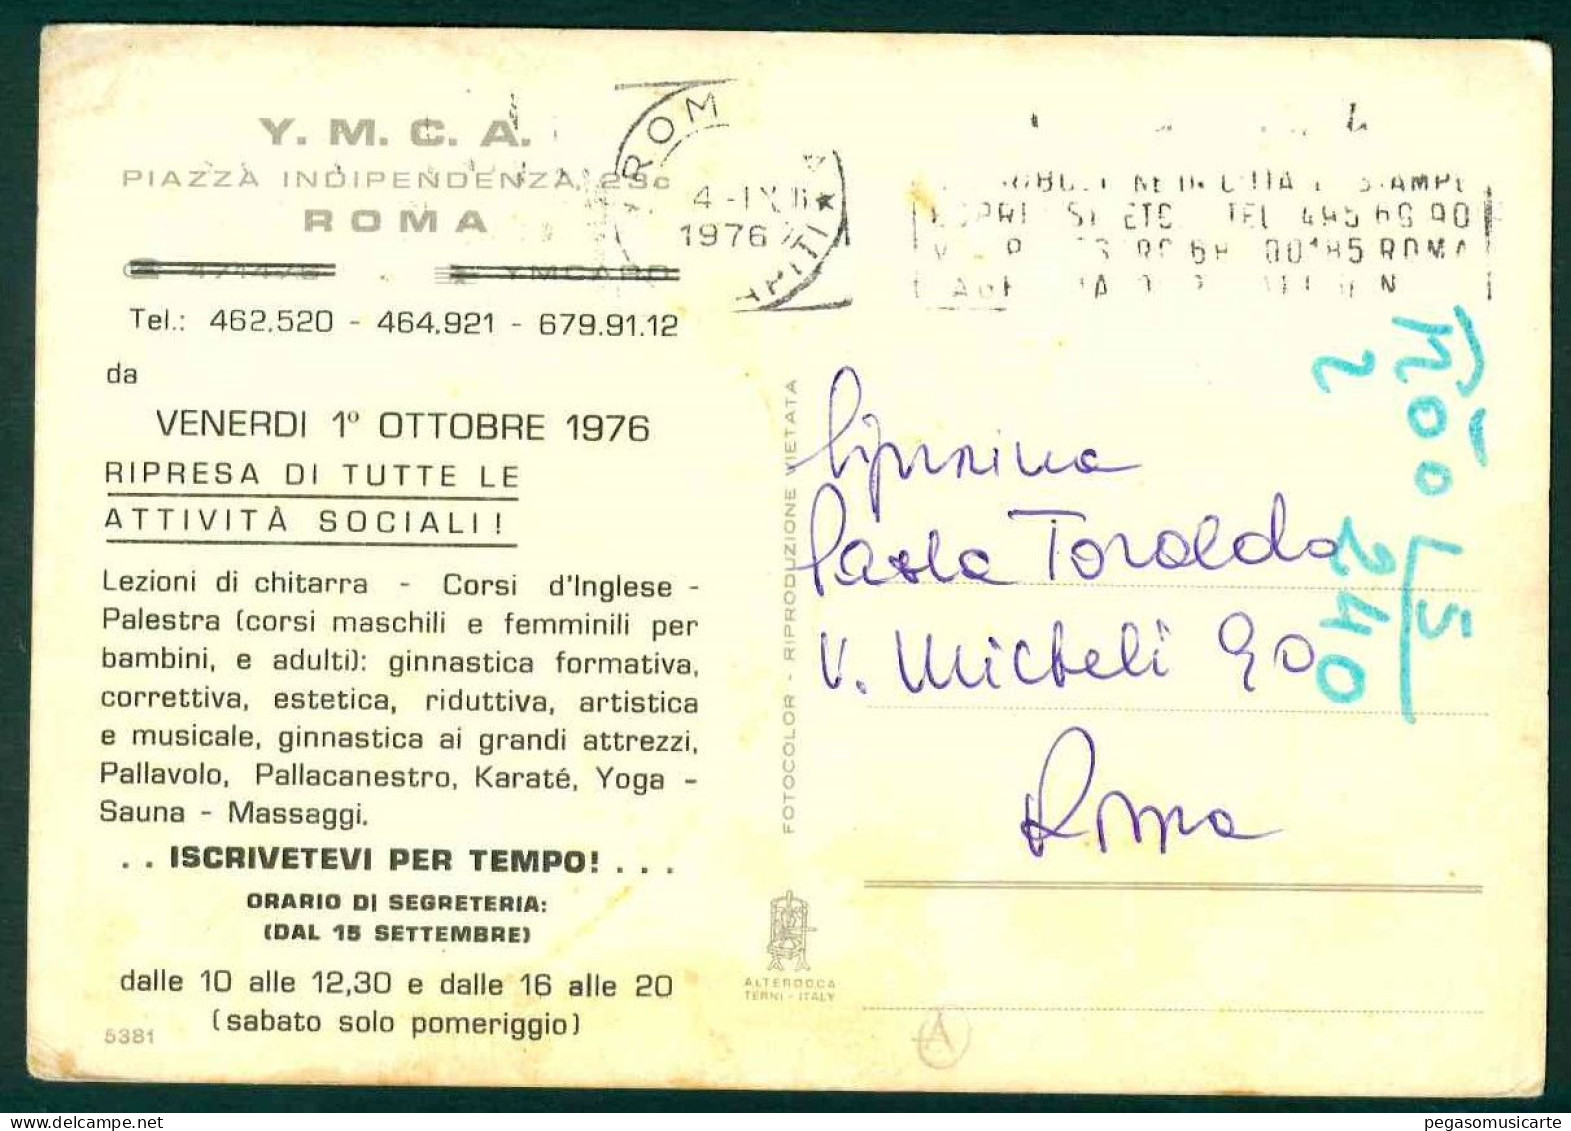 Y. M. C. A.
PIAZZA INDIPENDENZA, 23c
ROMA
471476 YMCARO
Tel.: 462.520 - 464.921 - 679.91.12
da
VENERDI 1º OTTOBRE 1976
RIPRESA DI TUTTE LE
ATTIVITÀ SOCIALI!
Lezioni di chitarra - Corsi d'Inglese -
Palestra (corsi maschili e femminili per
bambini, e adulti): ginnastica formativa,
correttiva, estetica, riduttiva, artistica
e musicale, ginnastica ai grandi attrezzi,
Pallavolo, Pallacanestro, Karaté, Yoga -
Sauna - Massaggi.
. . ISCRIVETEVI PER TEMPO! . . .
ORARIO DI SEGRETERIA:
(DAL 15 SETTEMBRE)
dalle 10 alle 12,30 e dalle 16 alle 20
(sabato solo pomeriggio)
5381
FOTOCOLOR - RIPRODUZIONE VIETATA
ALTEROCCA
TERNI - ITALY
ROM
1976
TEL 495 60 90
00185 ROMA
Paola Toraldo
V. Micheli 90
Roma
240
A
pegasomusicarte